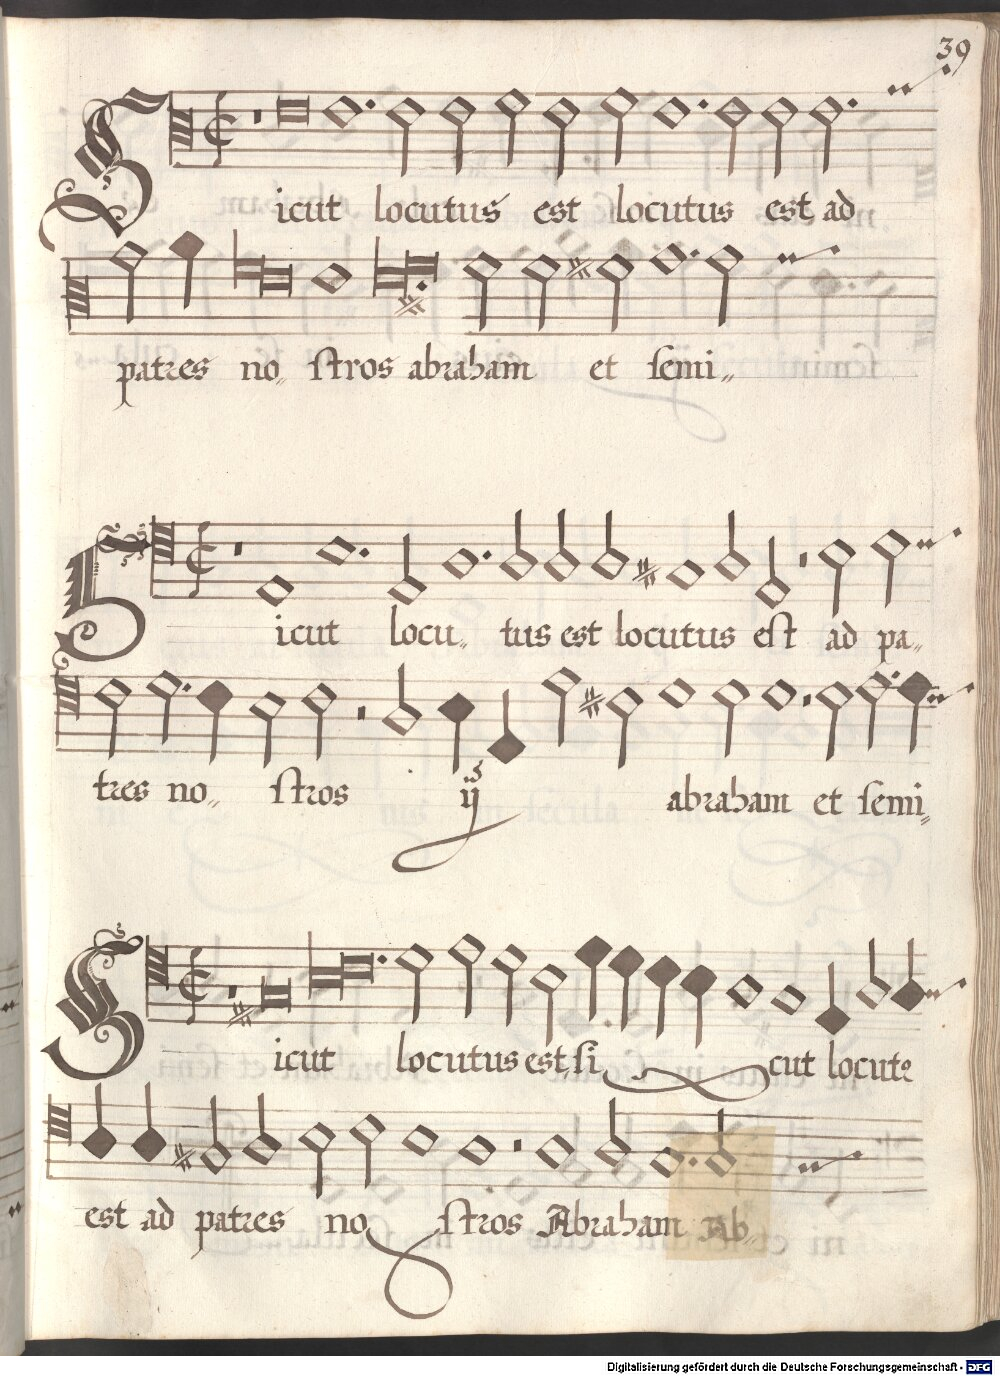 39
Sicut locutus est locutus est ad
patres no„ stros abraham et semi„
Sicut locu„ tus est locutus est ad pa„
tres no„ stros ij abraham et semi„
Sicut locutus est, si cut locut9
est ad patres no stros Abraham Ab„
Digitalisierung gefördert durch die Deutsche Forschungsgemeinschaft - DFG